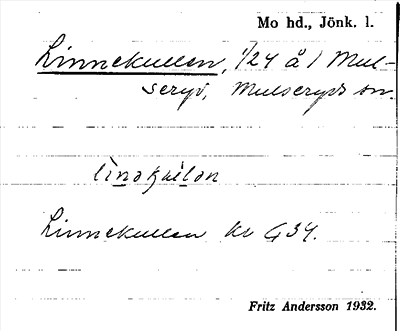 Mo hd., Jönk. l.
Linnekullen, 1/24 å 1 Mul-
seryd, Mulseryds sn.
Linnekullen kr G34.
Fritz Andersson 1932.